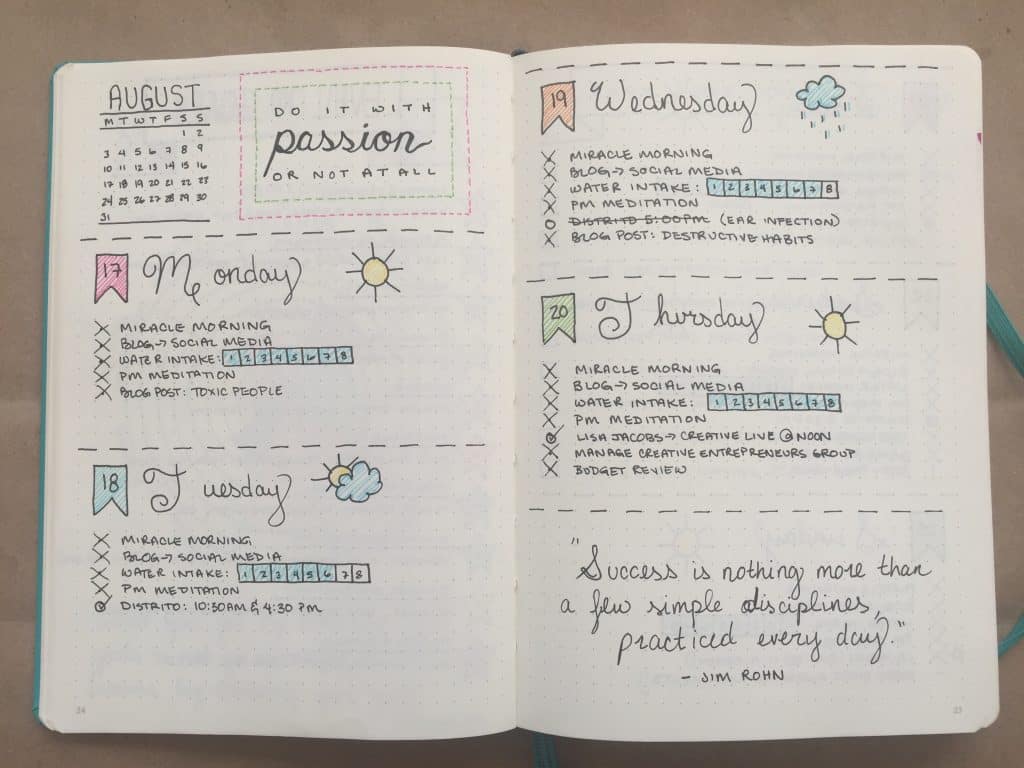 AUGUST
M T W T F S S
1 2
3 4 5 6 7 8 9
10 11 12 13 14 15 16
17 18 19 20 21 22 23
24 25 26 27 28 29 30
31
DO IT WITH
passion
OR NOT AT ALL
17 Monday
MIRACLE MORNING
BLOG → SOCIAL MEDIA
WATER INTAKE: 1 2 3 4 5 6 7 8
PM MEDITATION
BLOG POST: TOXIC PEOPLE
18 Tuesday
MIRACLE MORNING
BLOG → SOCIAL MEDIA
WATER INTAKE: 1 2 3 4 5 6 7 8
PM MEDITATION
DISTRITO: 10:30AM & 4:30 PM
24
19 Wednesday
MIRACLE MORNING
BLOG → SOCIAL MEDIA
WATER INTAKE: 1 2 3 4 5 6 7 8
PM MEDITATION
DISTRITO 5:00PM (EAR INFECTION)
BLOG POST: DESTRUCTIVE HABITS
20 Thursday
MIRACLE MORNING
BLOG → SOCIAL MEDIA
WATER INTAKE: 1 2 3 4 5 6 7 8
PM MEDITATION
LISA JACOBS → CREATIVE LIVE @ NOON
MANAGE CREATIVE ENTREPRENEURS GROUP
BUDGET REVIEW
"Success is nothing more than
a few simple disciplines,
practiced every day."
- JIM ROHN
25